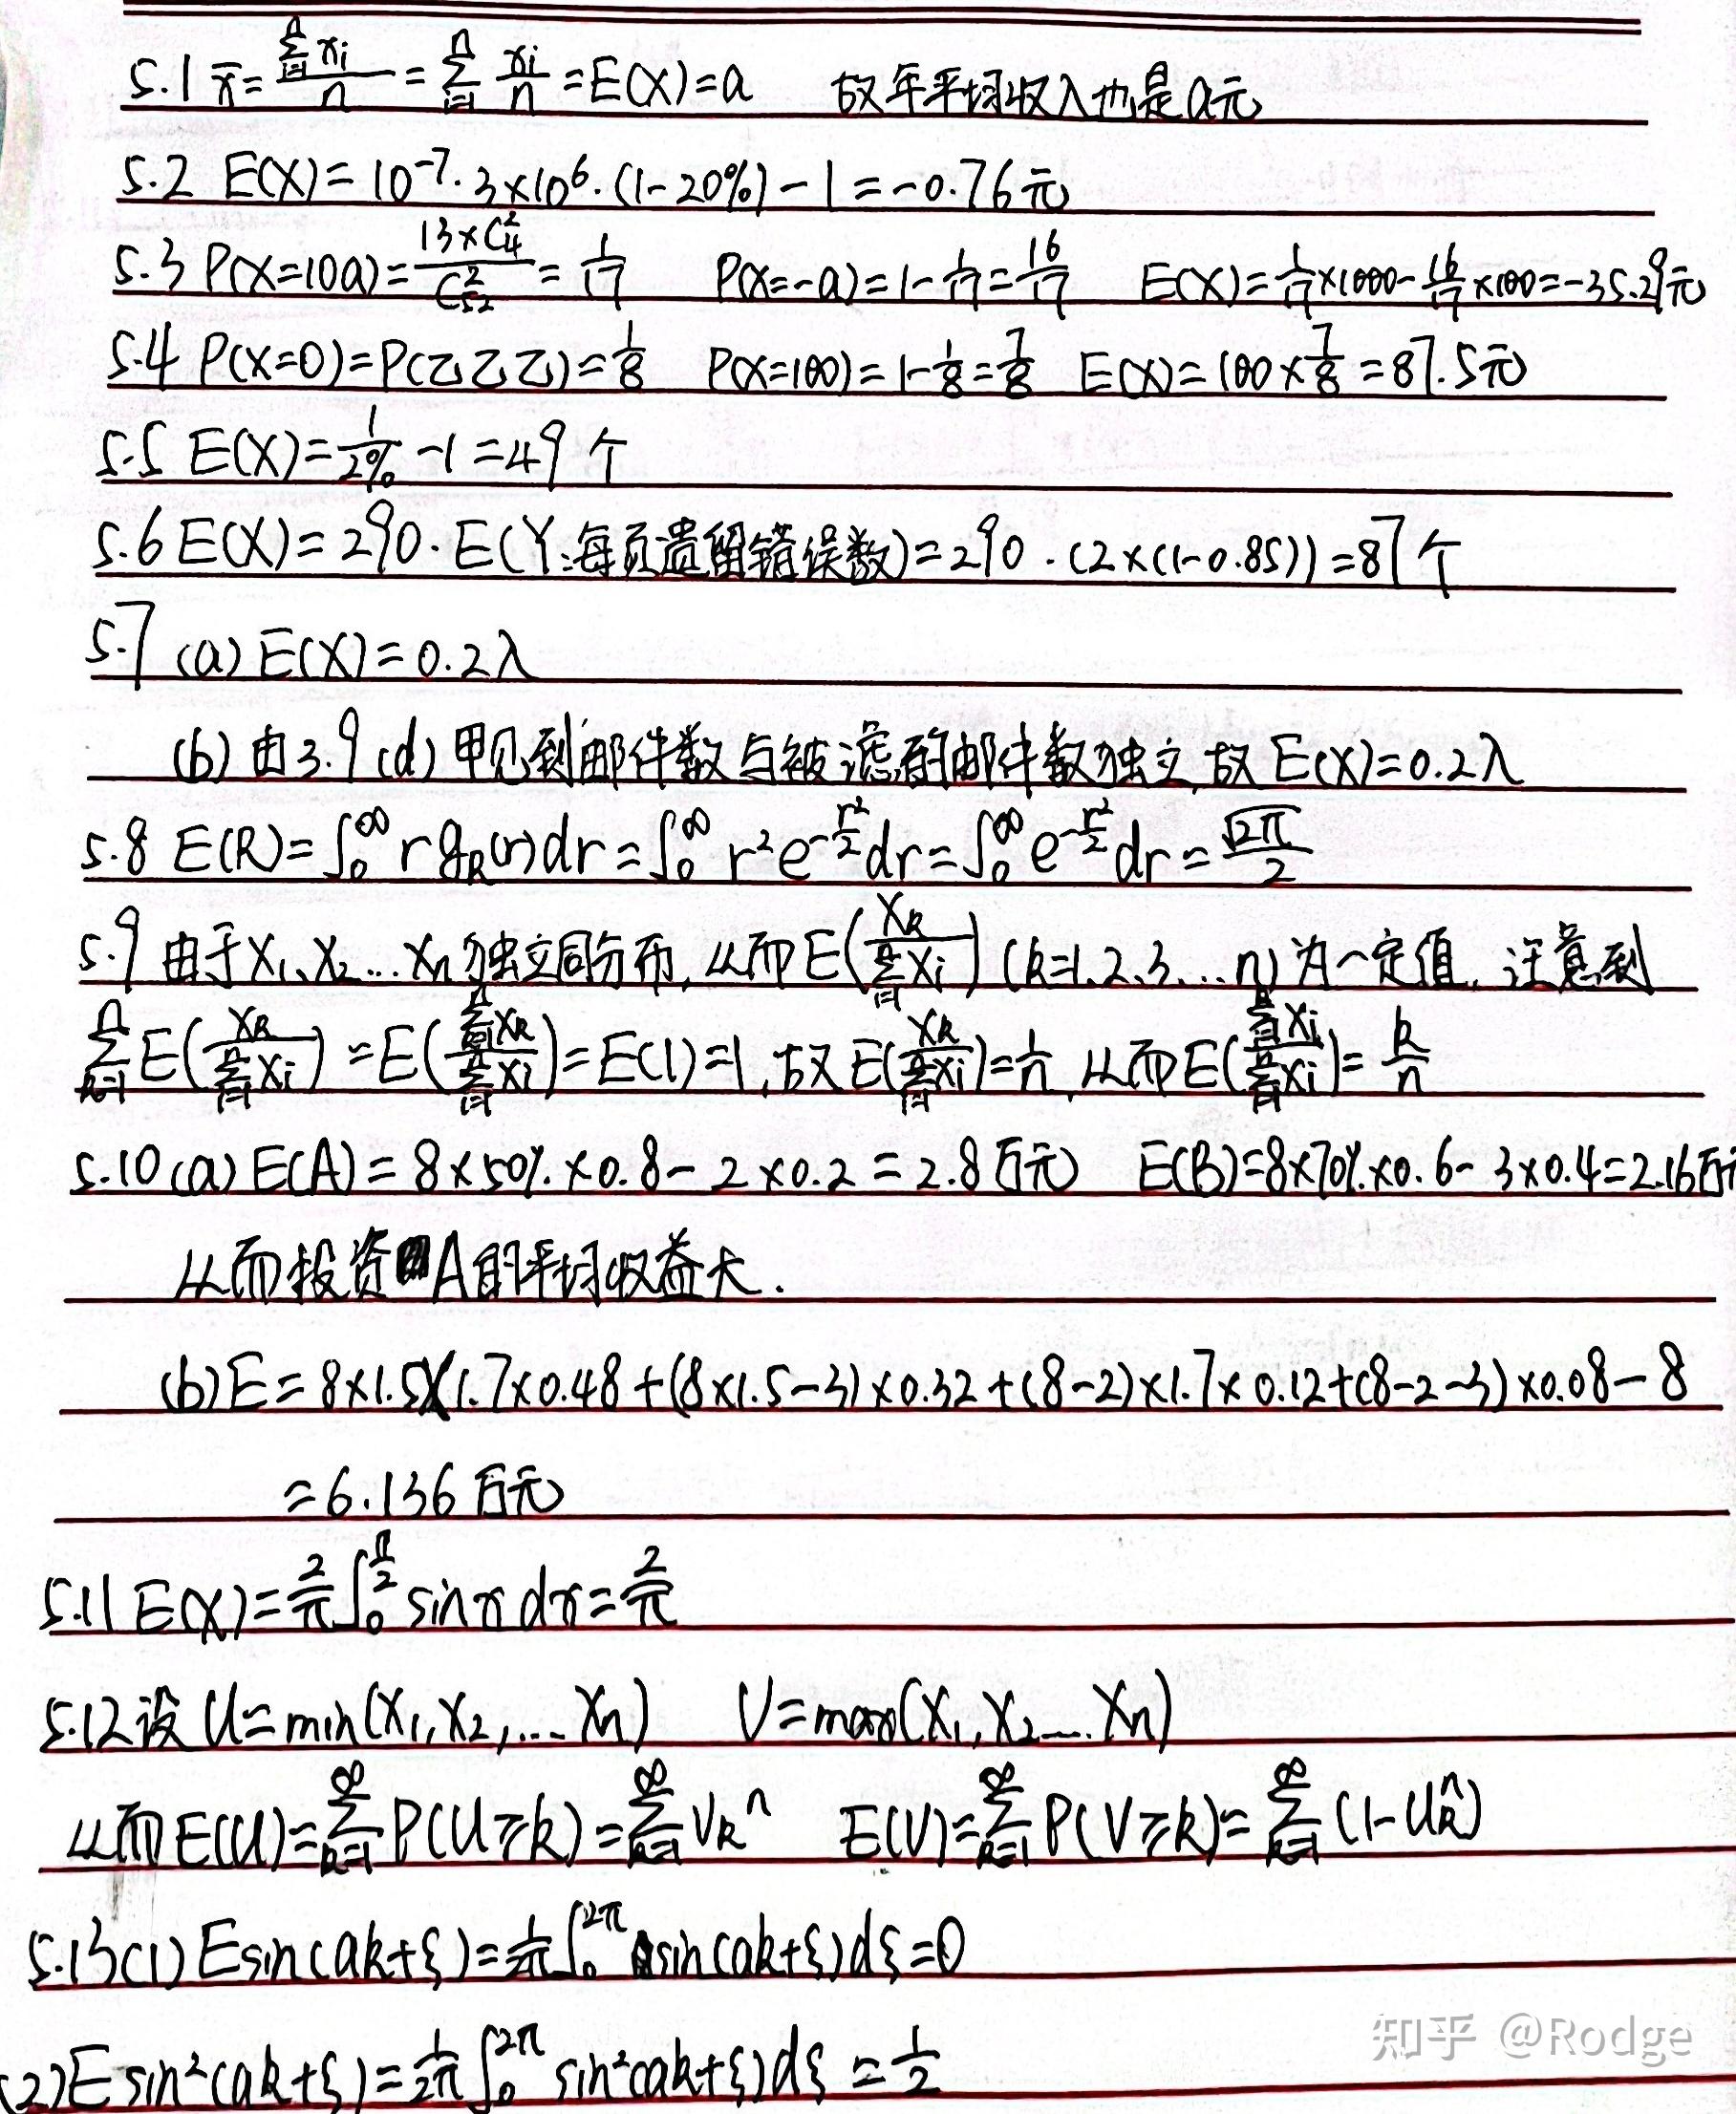 5.1 x̄ = \frac{\sum_{i=1}^{n} x_i}{n} = \sum_{i=1}^{n} \frac{x_i}{n} = E(X) = a 故年平均收入也是a元
5.2 E(X) = 10^{-7}·3×10^6·(1-20%) - 1 = -0.76元
5.3 P(X=10a) = \frac{13×C_4^2}{C_{52}^2} = \frac{1}{17} P(X=-a) = 1-\frac{1}{17} = \frac{16}{17} E(X) = \frac{1}{17}×1000-\frac{16}{17}×100 = -35.29元
5.4 P(X=0) = P(乙乙乙) = \frac{1}{8} P(X=100) = 1-\frac{1}{8} = \frac{7}{8} E(X) = 100×\frac{7}{8} = 87.5元
5.5 E(X) = \frac{1}{2%} - 1 = 49个
5.6 E(X) = 290·E(Y:每页遗留错误数) = 290·(2×(1-0.85)) = 87个
5.7 (a) E(X) = 0.2λ
(b) 由3.9(d) 甲见到邮件数与被滤的邮件数独立,故E(X) = 0.2λ
5.8 E(R) = \int_0^∞ r g_R(r)dr = \int_0^∞ r^2 e^{-\frac{r^2}{2}}dr = \int_0^∞ e^{-\frac{r^2}{2}}dr = \frac{\sqrt{2π}}{2}
5.9 由于X_1、X_2...X_n独立同分布,从而E(\frac{X_k}{\sum_{i=1}^{n} X_i}) (k=1.2.3....n)为一定值,注意到
\sum_{k=1}^{n} E(\frac{X_k}{\sum_{i=1}^{n} X_i}) = E(\frac{\sum_{k=1}^{n} X_k}{\sum_{i=1}^{n} X_i}) = E(1) = 1,故E(\frac{X_k}{\sum_{i=1}^{n} X_i}) = \frac{1}{n},从而E(\frac{\sum_{i=1}^{k} X_i}{\sum_{i=1}^{n} X_i}) = \frac{k}{n}
5.10 (a) E(A) = 8×50%×0.8-2×0.2 = 2.8万元 E(B) = 8×70%×0.6-3×0.4 = 2.16万元
从而投资A的平均收益大.
(b) E = 8×1.5×1.7×0.48+(8×1.5-3)×0.32+(8-2)×1.7×0.12+(8-2-3)×0.08-8
= 6.136万元
5.11 E(X) = \frac{2}{π}\int_0^{\frac{π}{2}} sinx dx = \frac{2}{π}
5.12 设U = min(X_1,X_2,...X_n) V = max(X_1,X_2...X_n)
从而E(U) = \sum_{k=1}^{∞} P(U≥k) = \sum_{k=1}^{∞} V_k^n E(V) = \sum_{k=1}^{∞} P(V≥k) = \sum_{k=1}^{∞} (1-U_k^n)
5.13 (1) Esin(ak+ξ) = \frac{1}{2π}\int_0^{2π} sin(ak+ξ)dξ = 0
(2) Esin^2(ak+ξ) = \frac{1}{2π}\int_0^{2π} sin^2(ak+ξ)dξ = \frac{1}{2}
知乎 @Rodge